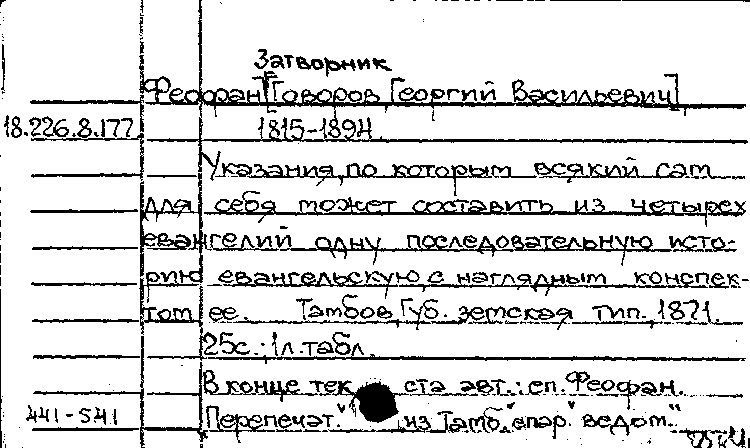 Затворник
Феофан [Говоров Георгий Васильевич]
18.226.8.177 1815-1894
Указания, по которым всякий сам
для себя может составить из четырех
евангелий одну последовательную исто-
рию евангельскую, с наглядным конспек-
том ее. Тамбов, Губ. земская тип., 1871.
25с.; 1л.табл.
В конце тек ста авт.: еп. Феофан.
441-541 Перепечат. из "Тамб. епар. ведом."